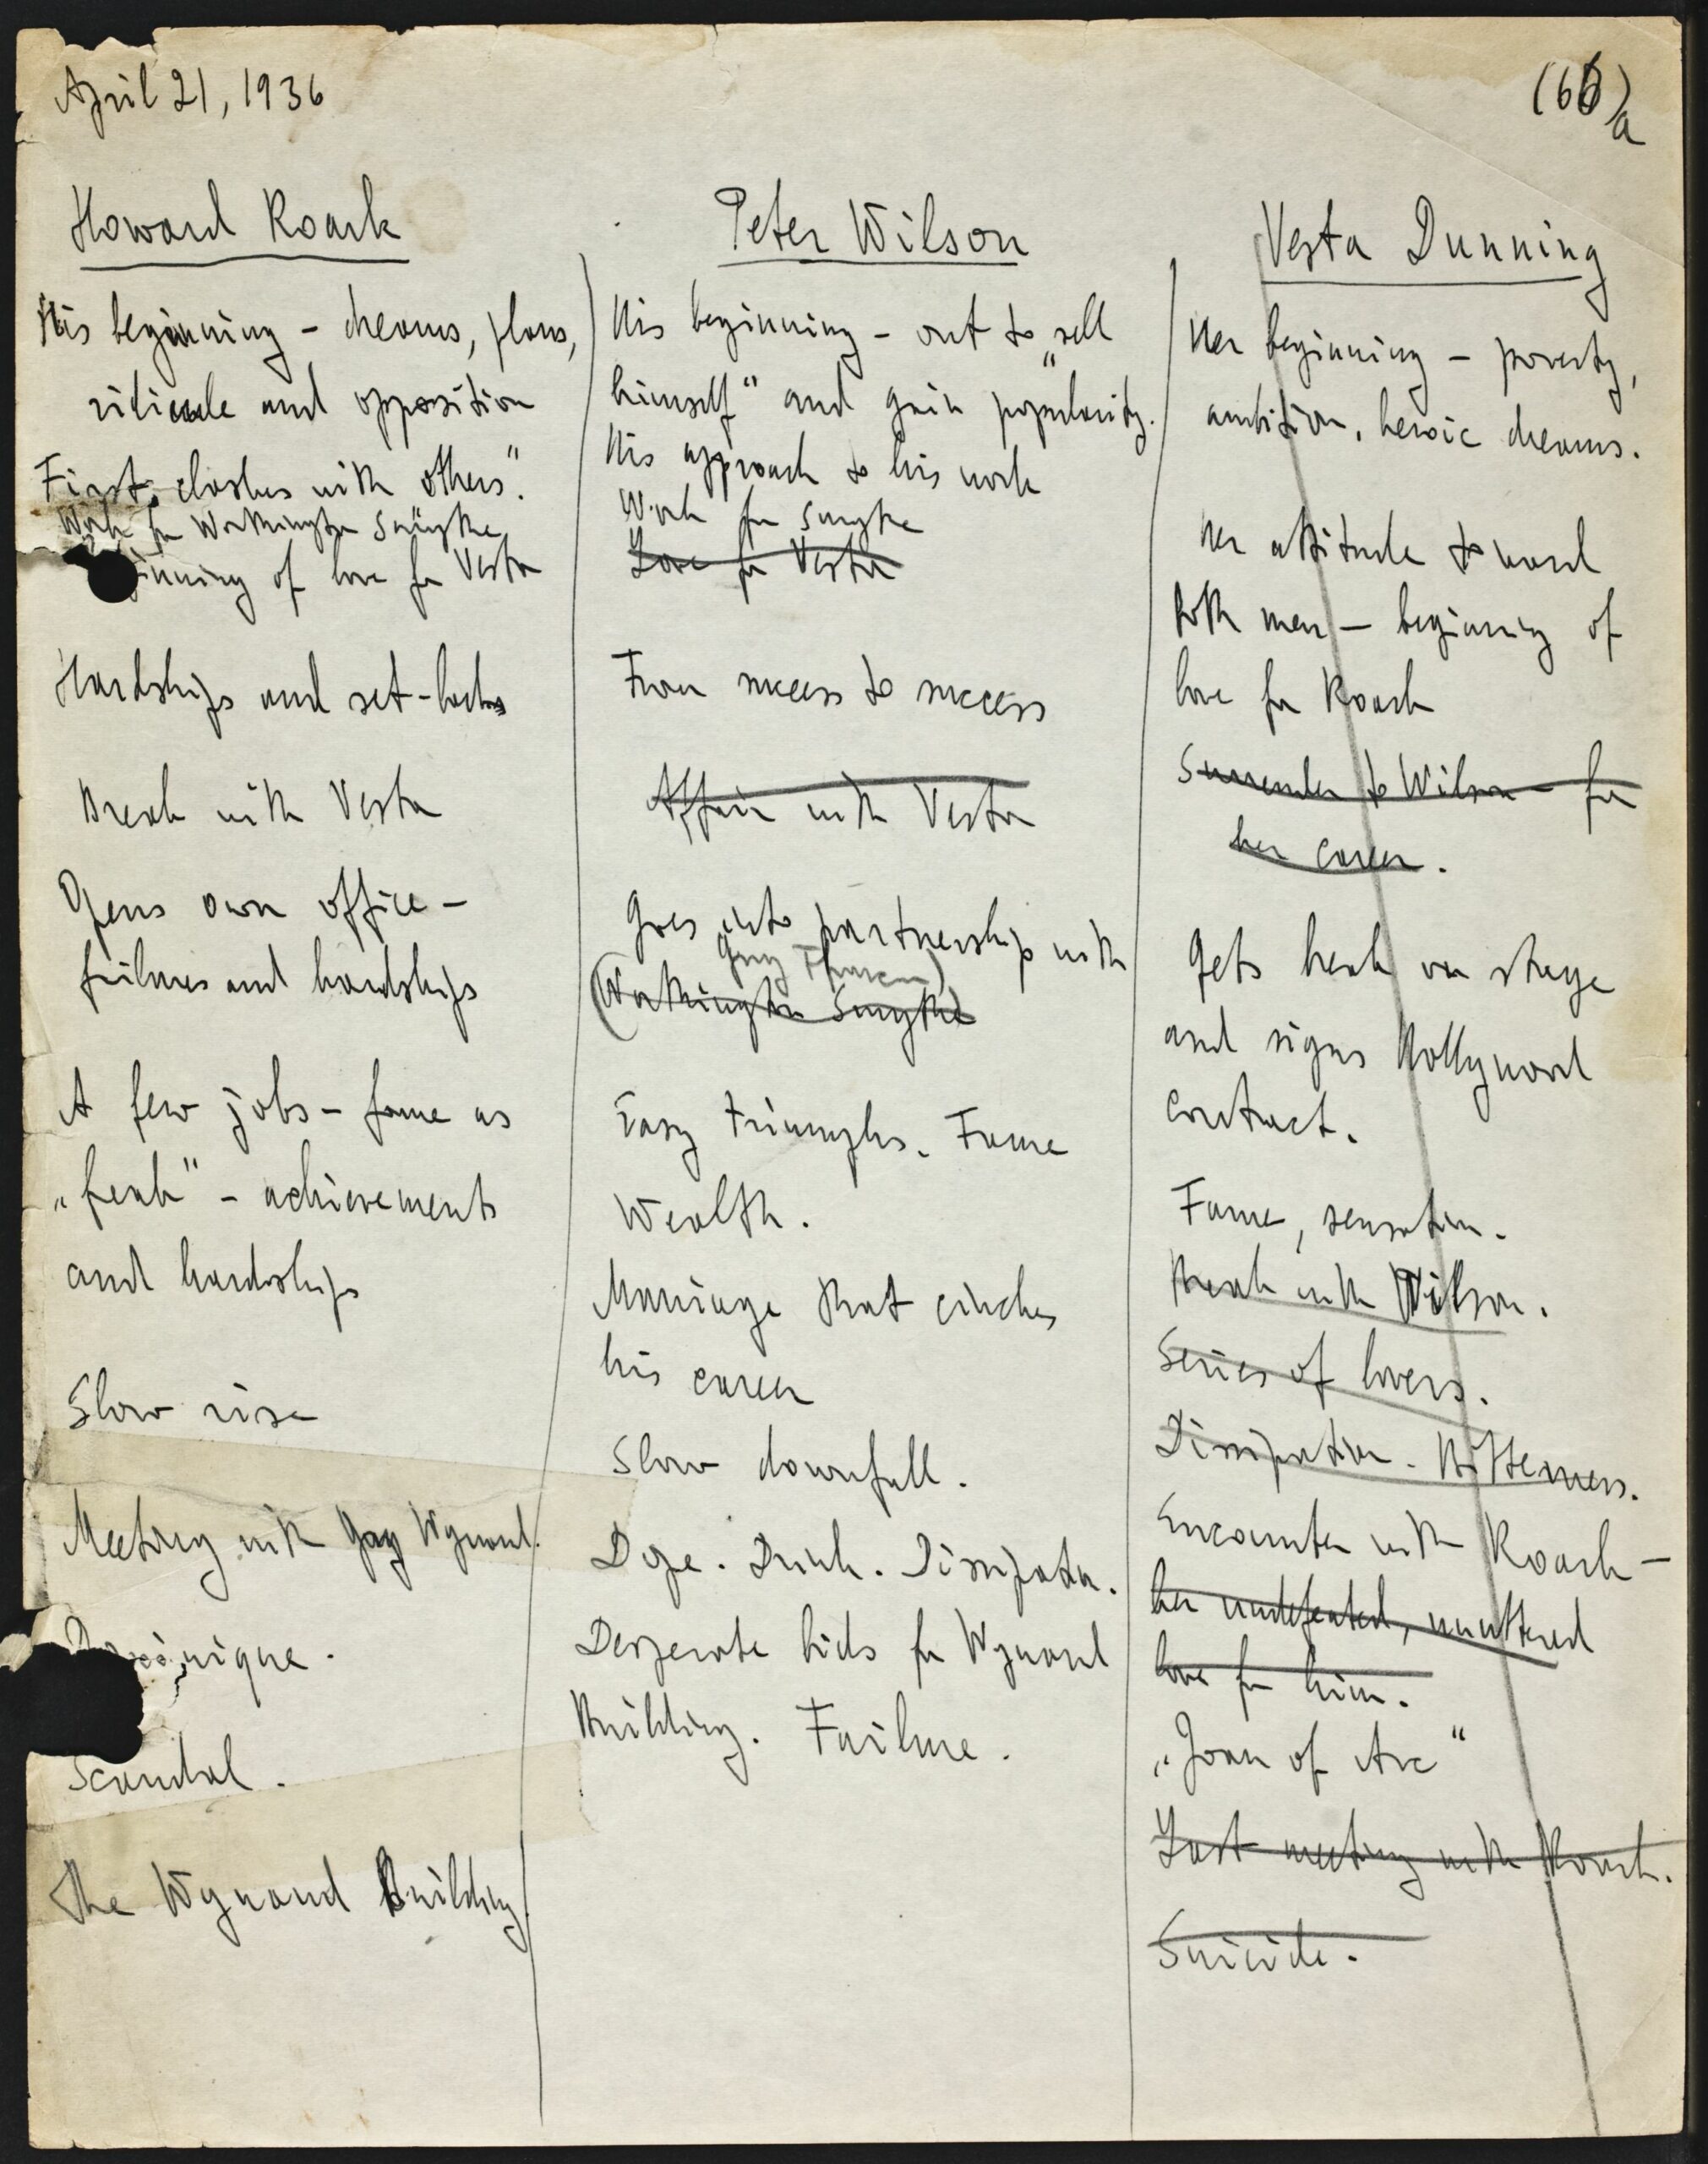 April 21, 1936
(66)a
Howard Roark
His beginning – dreams, plans,
ridicule and opposition
First "clashes with others".
Work for Worthington Smythe
inning of love for Vesta
Hardships and set-backs
Break with Vesta
Opens own office –
failures and hardships
A few jobs – fame as
„freak" – achievements
and hardships
Slow rise
Meeting with Gay Wynand.
inique.
Scandal.
The Wynand Building
Peter Wilson
His beginning – out to „sell
himself" and gain popularity.
His approach to his work
Work for Smythe
Love for Vesta
From success to success
Affair with Vesta
Goes into partnership with
(Worthington Smythe)
Easy triumphs. Fame
Wealth.
Marriage that cinches
his career
Slow downfall.
Dope. Drink. Dissipation.
Desperate bids for Wynand
Building. Failure.
Vesta Dunning
Her beginning – poverty,
ambition, heroic dreams.
Her attitude toward
both men – beginning of
love for Roark
Surrender to Wilson – for
her career.
Gets break on stage
and signs Hollywood
contract.
Fame, sensation.
Break with Wilson.
Series of lovers.
Dissipation. Bitterness.
Encounter with Roark –
her undefeated, unuttered
love for him.
„Joan of Arc"
Last meeting with Roark.
Suicide.